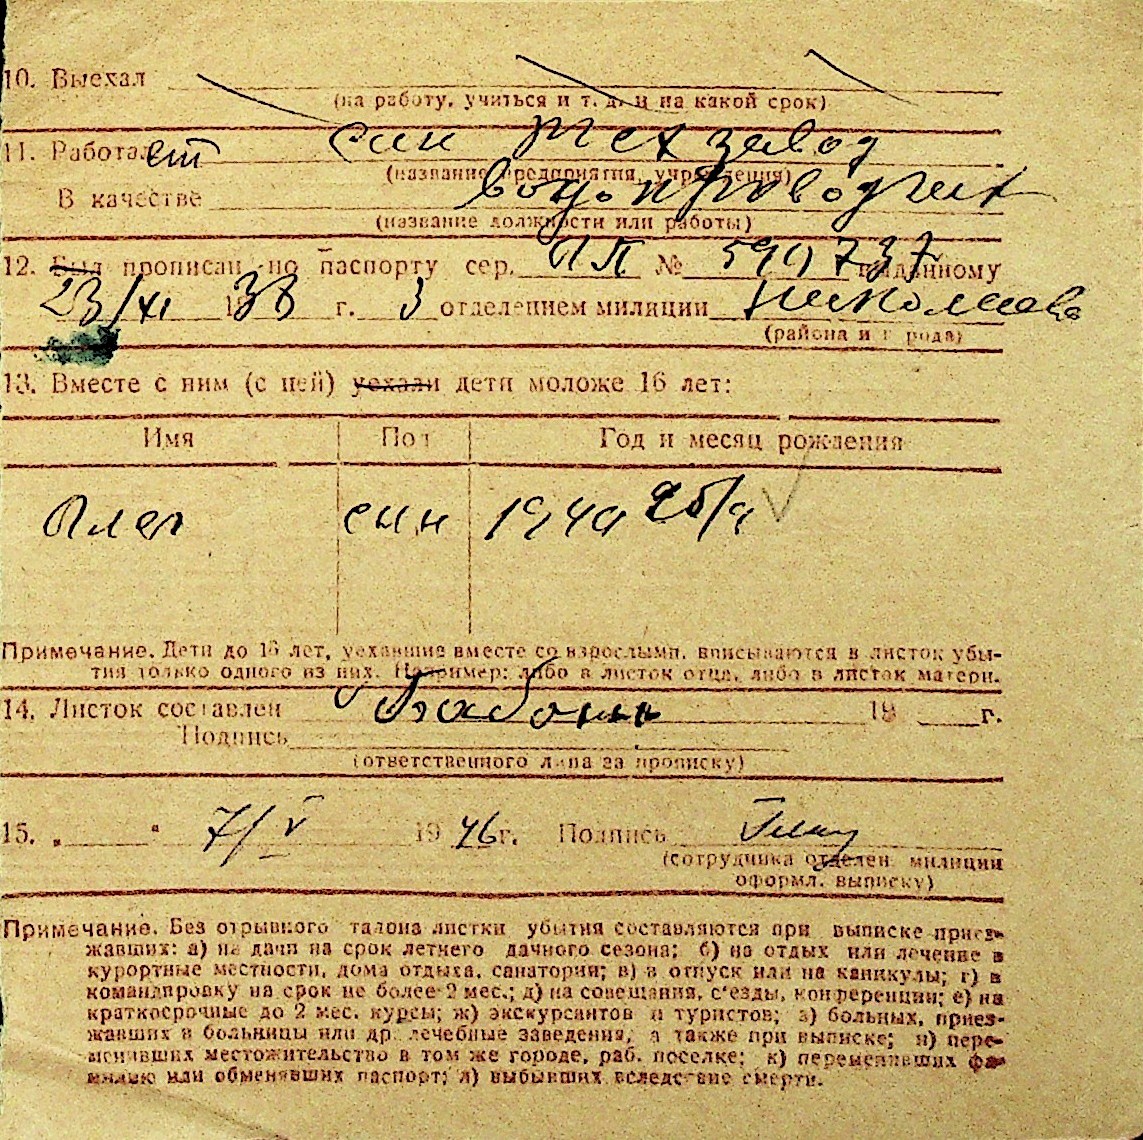 10. Выехал
(на работу, учиться и т. д. и на какой срок)
11. Работает
(название предприятия, учреждения)
завод
В качестве водопроводчик
(название должности или работы)
12. Был прописан по паспорту сер. № 590737 выданному
23/XI 1938 г. 3 отделением милиции Николаева
(района и города)
13. Вместе с ним (с ней) уехали дети моложе 16 лет:
Имя Пол Год и месяц рождения
Олег сын 1940
Примечание. Дети до 16 лет, уехавшие вместе со взрослыми, вписываются в листок убы-
тия только одного из них. Например: либо в листок отца, либо в листок матери.
14. Листок составлен 19 г.
Подпись
(ответственного лица за прописку)
15. „ “ 7/V 1946 г. Подпись
(сотрудника отделен. милиции
оформл. выписку)
Примечание. Без отрывного талона листки убытия составляются при выписке приез-
жавших: а) на дачи на срок летнего дачного сезона; б) на отдых или лечение в
курортные местности, дома отдыха, санатории; в) в отпуск или на каникулы; г) в
командировку на срок не более 2 мес.; д) на совещания, с'езды, конференции; е) на
краткосрочные до 2 мес. курсы; ж) экскурсантов и туристов; з) больных, приез-
жавших в больницы или др. лечебные заведения, а также при выписке; и) пере-
менивших местожительство в том же городе, раб. поселке; к) переменивших фа-
милию или обменявших паспорт; л) выбывших вследствие смерти.